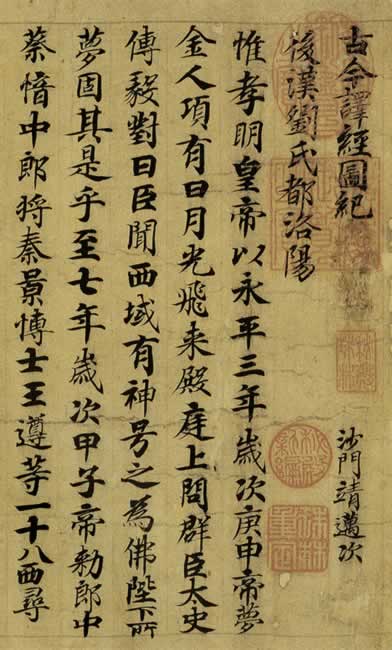 古今譯經圖紀
沙門靖邁次
後漢劉氏都洛陽
惟孝明皇帝以永平三年歲次庚申帝夢
金人項有日月光飛来殿庭上問群臣太史
傅毅對曰臣聞西域有神号之為佛陛下所
夢固其是乎至七年歲次甲子帝勑郎中
蔡愔中郎将秦景愽士王遵等一十八西尋